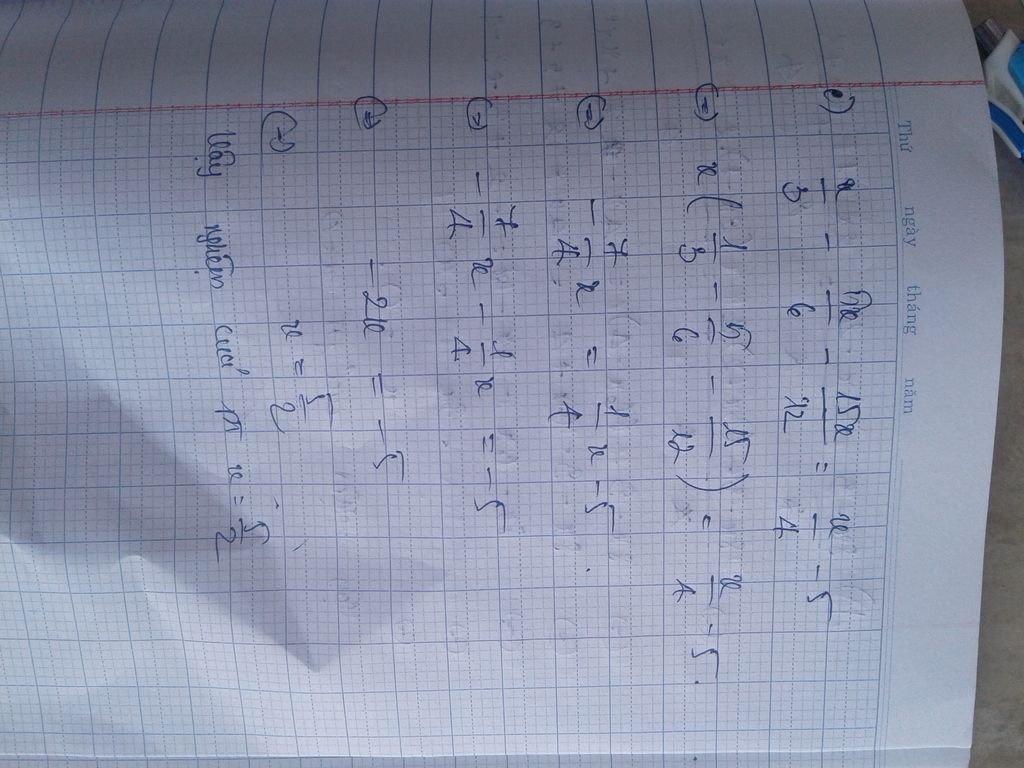 Thứ ngày tháng năm
e) x/3 - 5x/6 - 15x/12 = x/4 - 5
(=) x(1/3 - 5/6 - 15/12) = x/4 - 5
(=) -7/4 x = 1/4 x - 5
(=) -7/4 x - 1/4 x = -5
(=) -2x = -5
(=) x = 5/2
Vậy nghiệm của PT x = 5/2